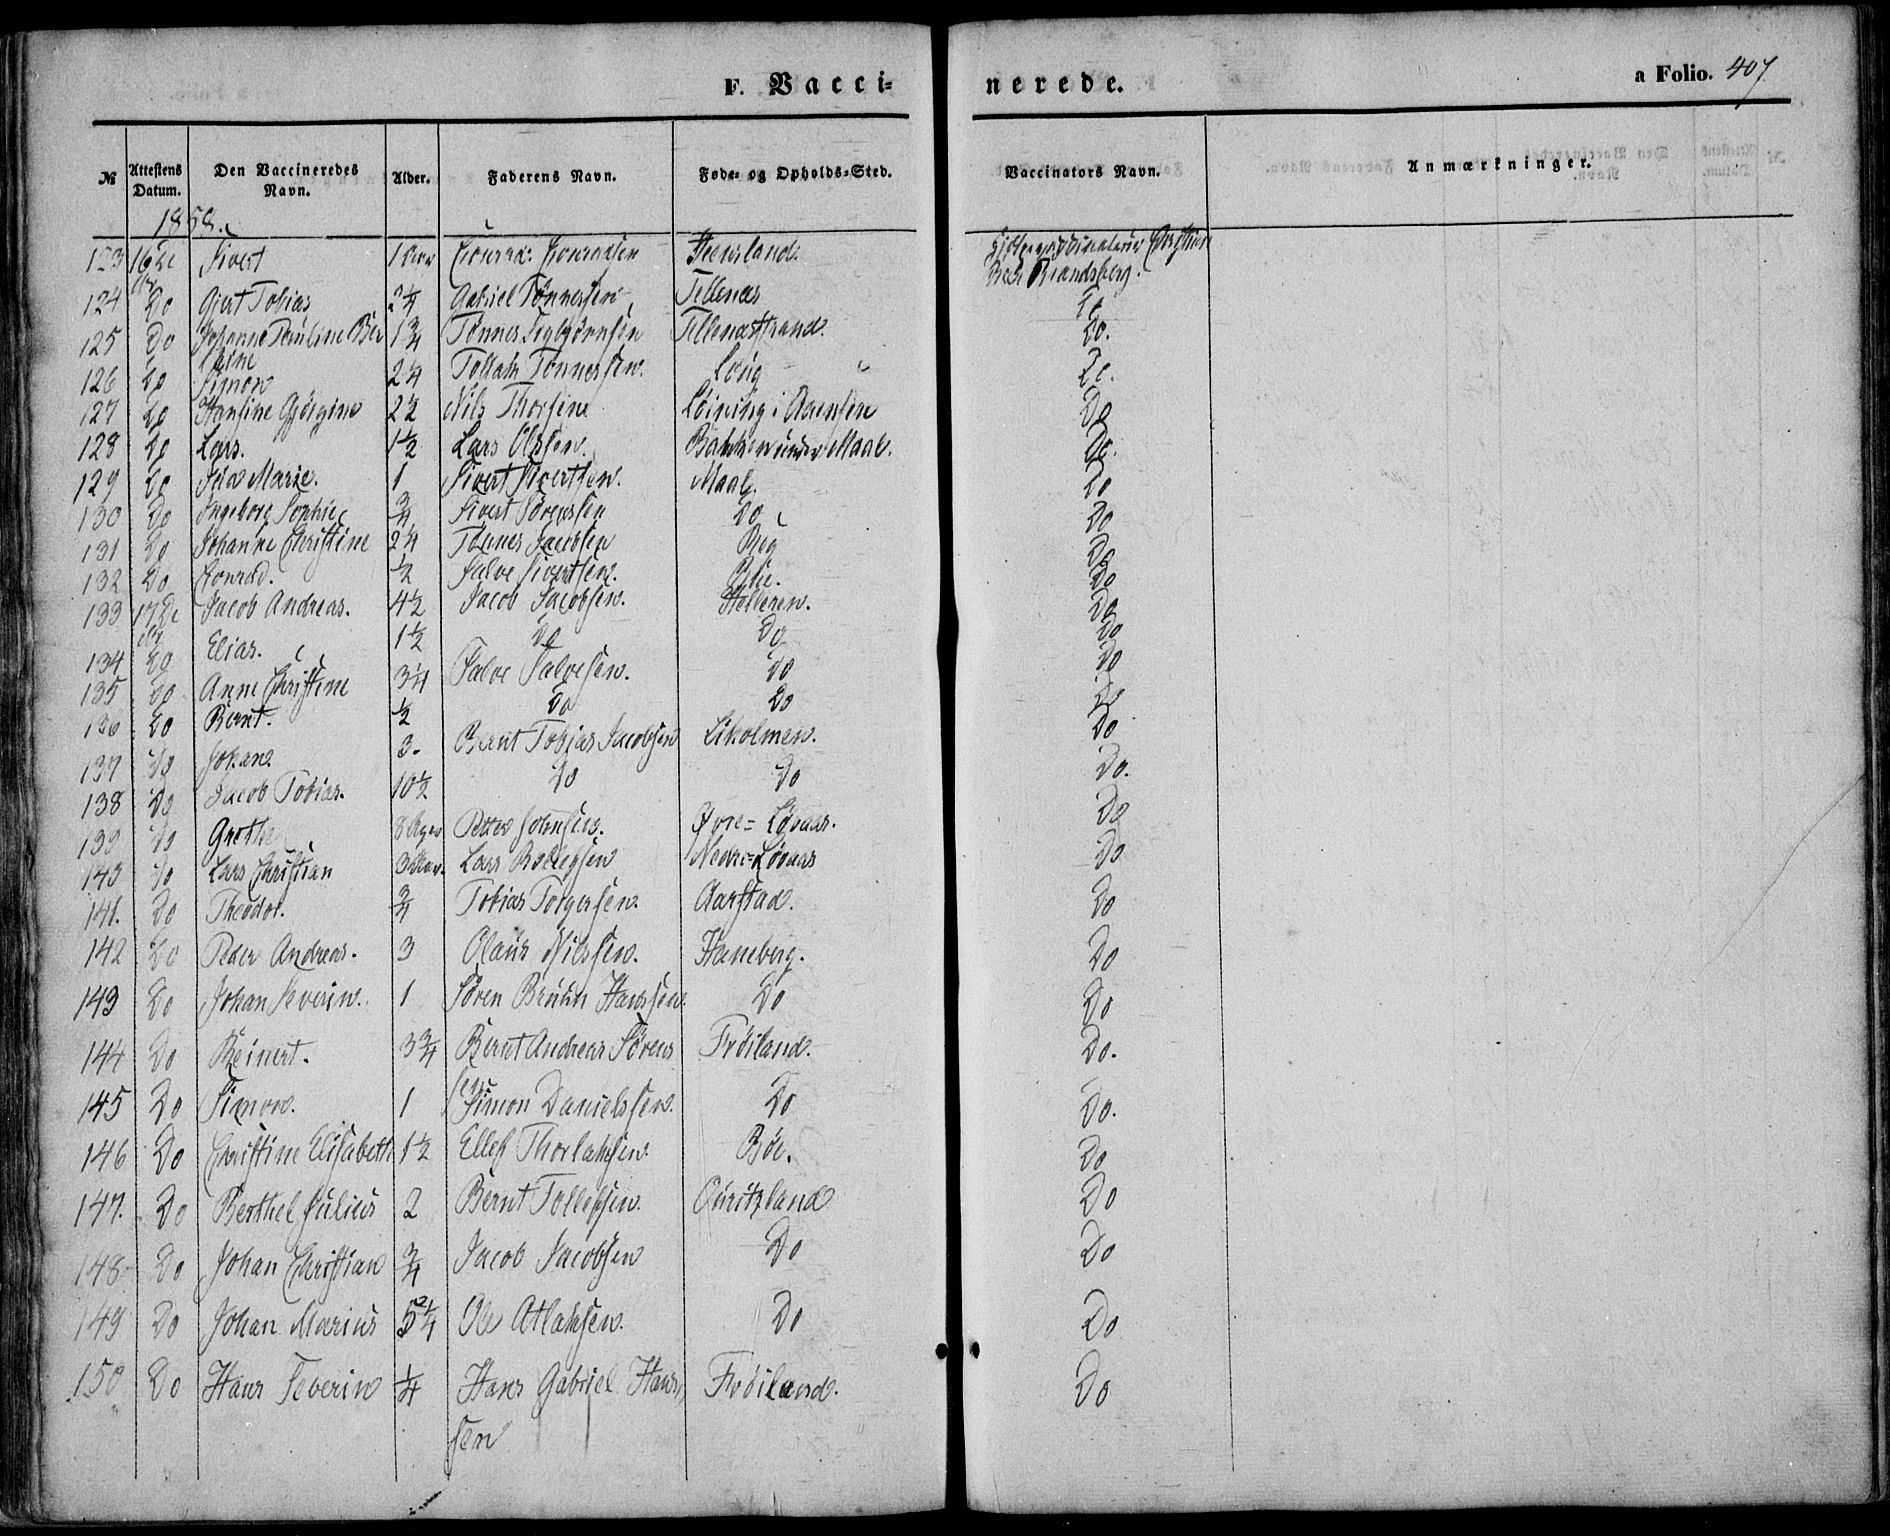 F. Vacci-
nerede.
a Folio. 407
№ Attestens Datum. Den Vaccineredes Navn. Alder. Faderens Navn. Føde- og Opholds-Sted. Vaccinators Navn. Anmærkninger.
1858.
123 16 De Sivert 1 Conrad Conradsen
124 Do Gjert Tobias 2¼ Gabriel Tønnessen Tellenæs Do
125 Do Johanne Pauline Ber 1¾ Tønnes Tellenæsstrand. Do.
126 Do Simon 2¼ Tollak Tønnessen. Do.
127 Do Hansine 2½ Nils Thorsen Løining i Do
128 Do Lars. 1½ Lars Olssen. Bakken under Maal. Do.
129 Do Ida Marie. 1 Sivert Sivertsen. Maal. Do
130 Do Ingeborg Sophie ¾ Sivert Sørensen Do Do
131 Do Johanne Christine 2¼ Tønnes Do
132 Do Conrad. ½ Salve Sivertsen. Do
133 17 De Jacob Andreas. 4½ Jacob Jacobsen. Helleren. Do
134 Do Elias. 1½ Do Do Do
135 Do Anne Christine 3¼ Salve Salvesen. Do Do
136 Do Bernt. ½ Do Do Do
137 Do Johan. 3. Bernt Tobias Jacobsen Likolmen. Do
138 Do Jacob Tobias. 10½ Do Do Do.
139 Do Grethe 8 Uger Petter Johnsen. Øvre=Løvaas. Do
143 Do Lars Christian Lars Nedre=Løvaas Do
141. Do Theodor. ¾ Tobias Torgersen. Aarstad. Do
142 Do Peder Andreas. 3 Olaus Nilssen. Haneberg. Do
143 Do Johan Severin. 1 Søren Hanssen Do Do
144 Do Reinert. 3¾ Bernt Andreas Sørens Frøiland. Do.
sen
145 Do Simon. 1 Simon Danielssen. Do Do.
146 Do Christine Elisabeth 1½ Ellef Thorlaksen. Bøe. Do
147. Do Berthel Julius 2 Bernt Tollefsen. Do
148 Do Johan Christian ¾ Jacob Jacobsen Do Do
149 Do Johan Marius 5¼ Ole Atlaksen. Do Do
150 Do Hans Severin ¼ Hans Gabriel Hans Frøiland. Do
sen